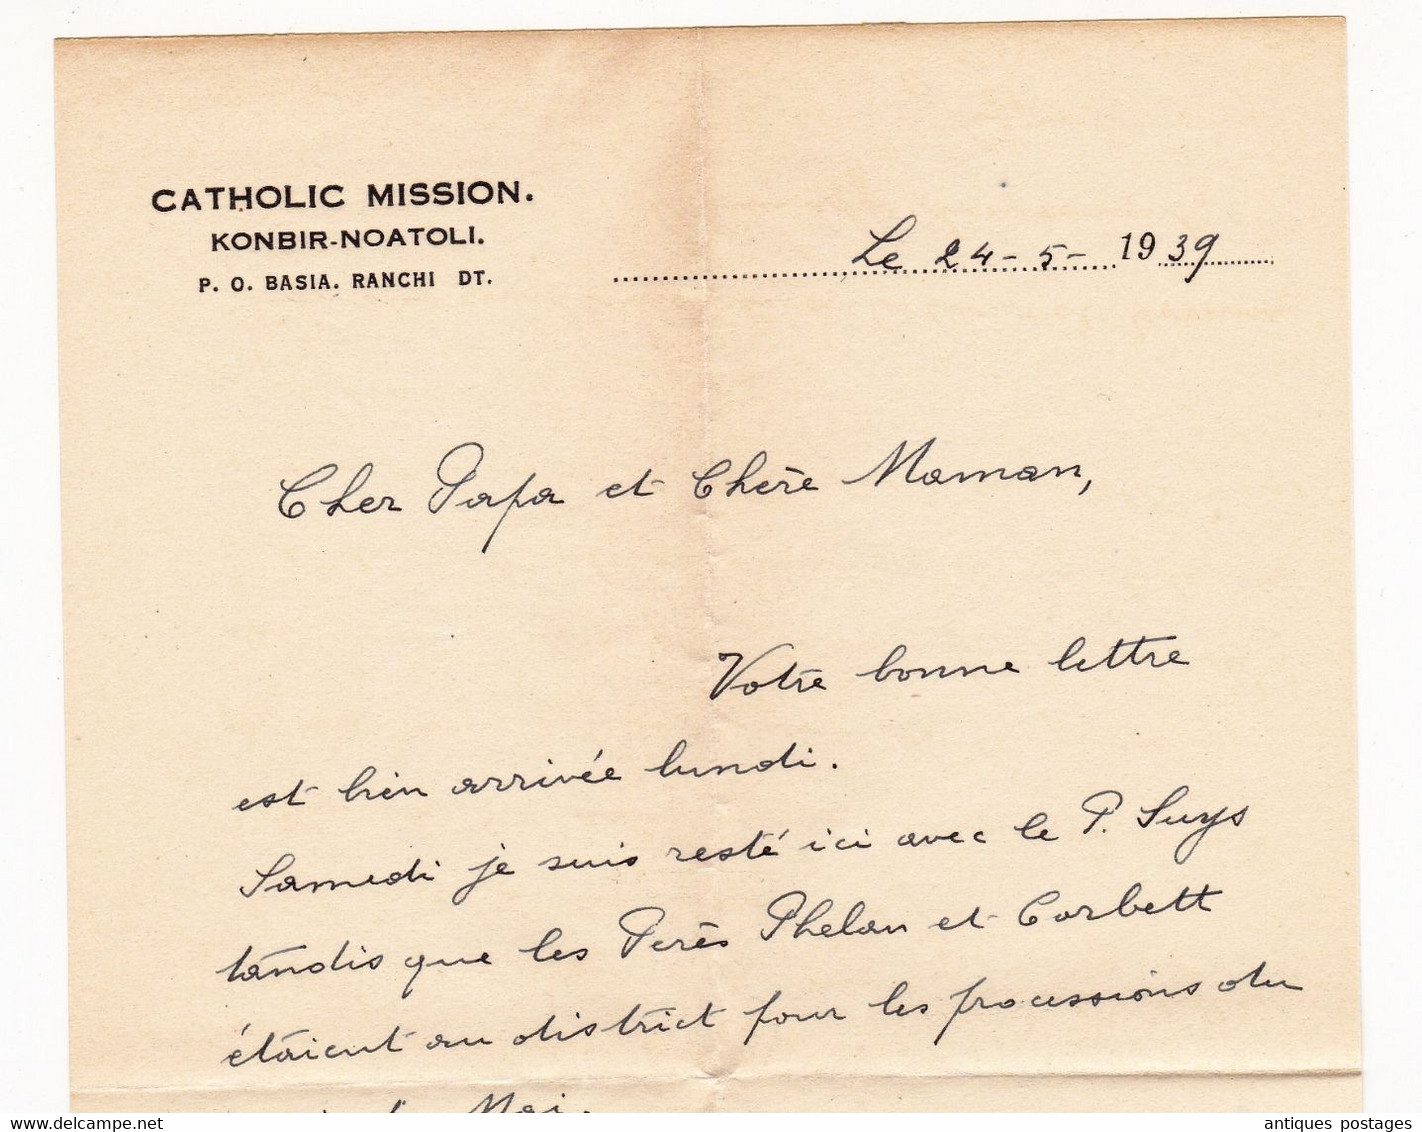 CATHOLIC MISSION.
KONBIR-NOATOLI.
P. O. BASIA. RANCHI DT.
Le 24-5-1939
Cher Papa et Chère Maman,
Votre bonne lettre
est bien arrivée lundi.
Samedi je suis resté ici avec le P. Suys
tandis que les Pères Phelan et Corbett
étaient au district pour les processions du
Mai.
antiques postages
www.delcampe.net